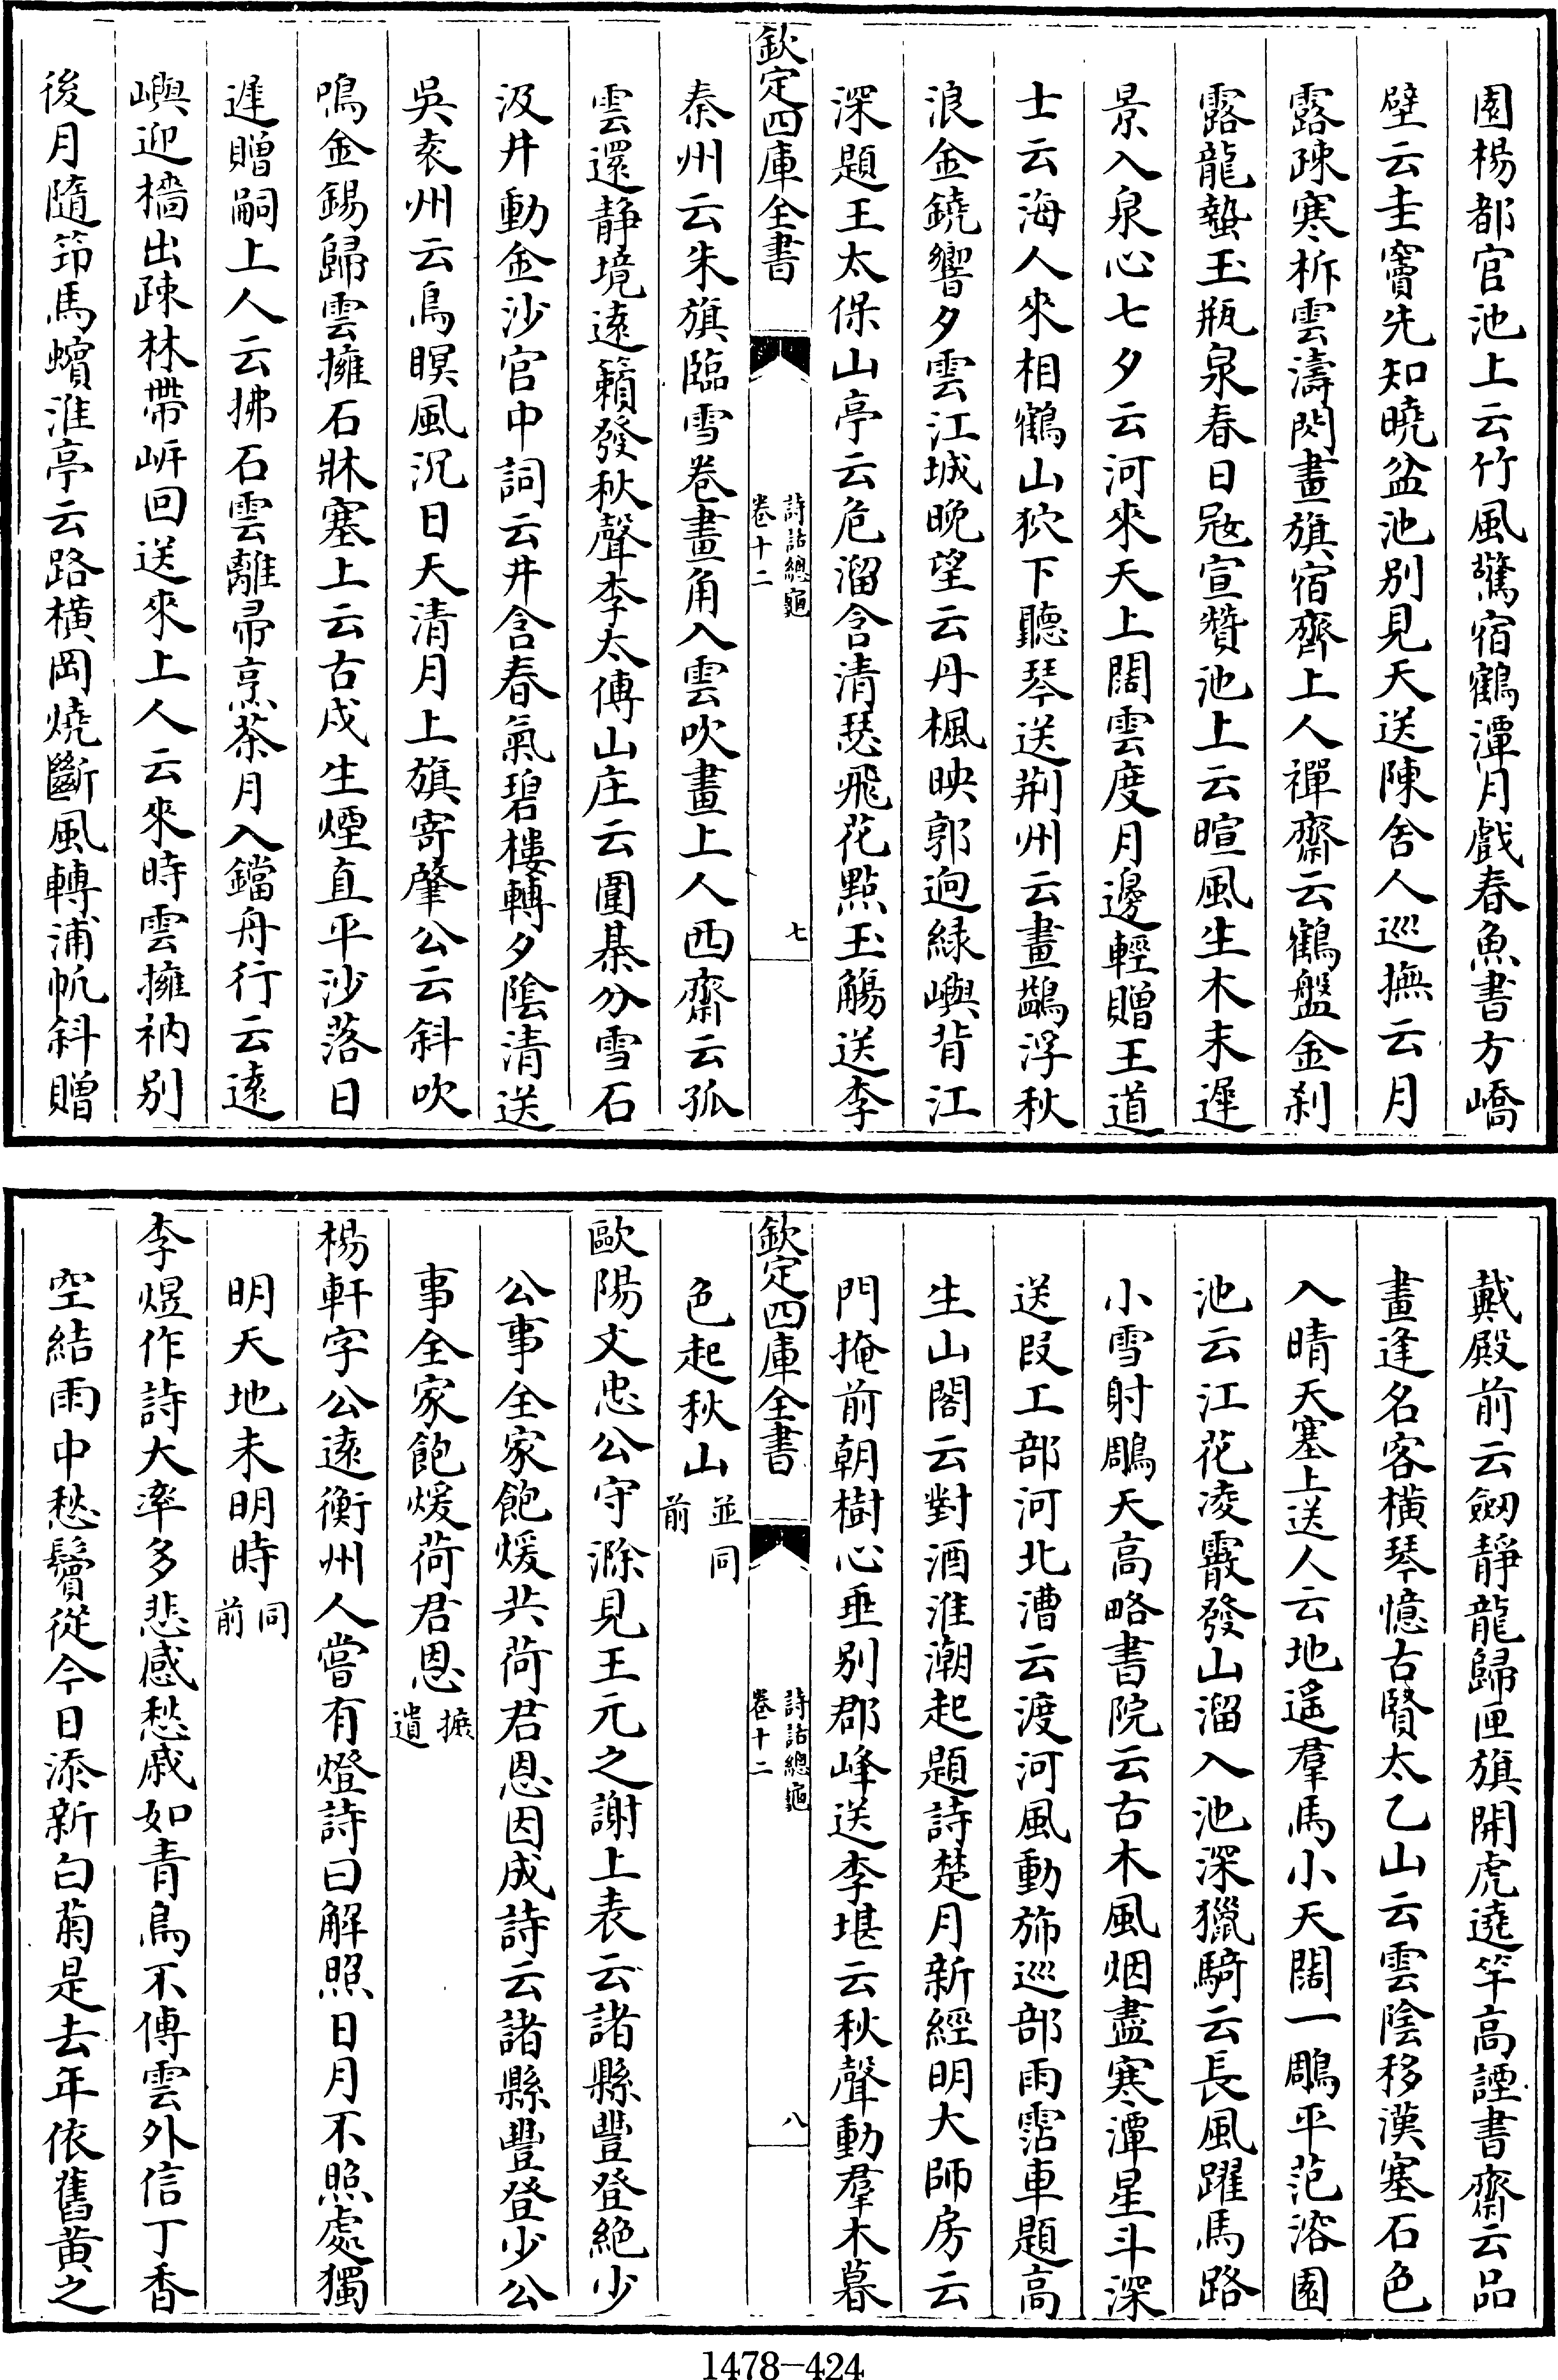 園楊都官池上云竹風驚宿鶴潭月戲春魚書方嶠
壁云圭竇先知曉盆池别見天送陳舍人巡撫云月
露疎寒柝雲濤閃畫旗宿齊上人禪齋云鶴盤金刹
露龍蟄玉瓶泉春日宼宣贊池上云暄風生木末遲
景入泉心七夕云河來天上闊雲度月邊輕贈王道
士云海人來相鶴山狖下聽琴送荆州云畫鷁浮秋
浪金鐃響夕雲江城晚望云丹楓映郭逈緑嶼背江
深題王太保山亭云危溜含清瑟飛花點玉觴送李
欽定四庫全書
詩話總龜
卷十二
七
秦州云朱旗臨雪卷畫角入雲吹畫上人西齋云孤
雲還静境遠籟發秋聲李太傅山庄云圍棊分雪石
汲井動金沙官中詞云井含春氣碧樓轉夕陰清送
吳袁州云鳥暝風沉日天清月上旗寄肇公云斜吹
鳴金錫歸雲擁石牀塞上云古戍生煙直平沙落日
遲贈嗣上人云拂石雲離帚烹茶月入鐺舟行云遠
嶼迎檣出疎林帶㟁回送來上人云來時雲擁衲别
後月隨笻馬蠙淮亭云路横岡燒斷風轉浦帆斜贈
戴殿前云劒静龍歸匣旗開虎遶竿高諲書齋云品
畫逢名客横琴憶古賢太乙山云雲陰移漢塞石色
入晴天塞上送人云地遥羣馬小天闊一鵰平范溶園
池云江花凌霰發山溜入池深獵騎云長風躍馬路
小雪射鵰天高略書院云古木風烟盡寒潭星斗深
送段工部河北漕云渡河風動斾巡部雨霑車題高
生山閣云對酒淮潮起題詩楚月新經明大師房云
門掩前朝樹心垂别郡峰送李堪云秋聲動羣木暮
欽定四庫全書
詩話總龜
卷十二
八
色起秋山並同前
歐陽文忠公守滁見王元之謝上表云諸縣豐登絶少
公事全家飽煖共荷君恩因成詩云諸縣豐登少公
事全家飽煖荷君恩摭遺
楊軒字公遠衡州人嘗有燈詩曰解照日月不照處獨
明天地未明時同前
李煜作詩大率多悲感愁戚如青鳥不傳雲外信丁香
空結雨中愁鬢從今日添新白菊是去年依舊黄之
1478-424